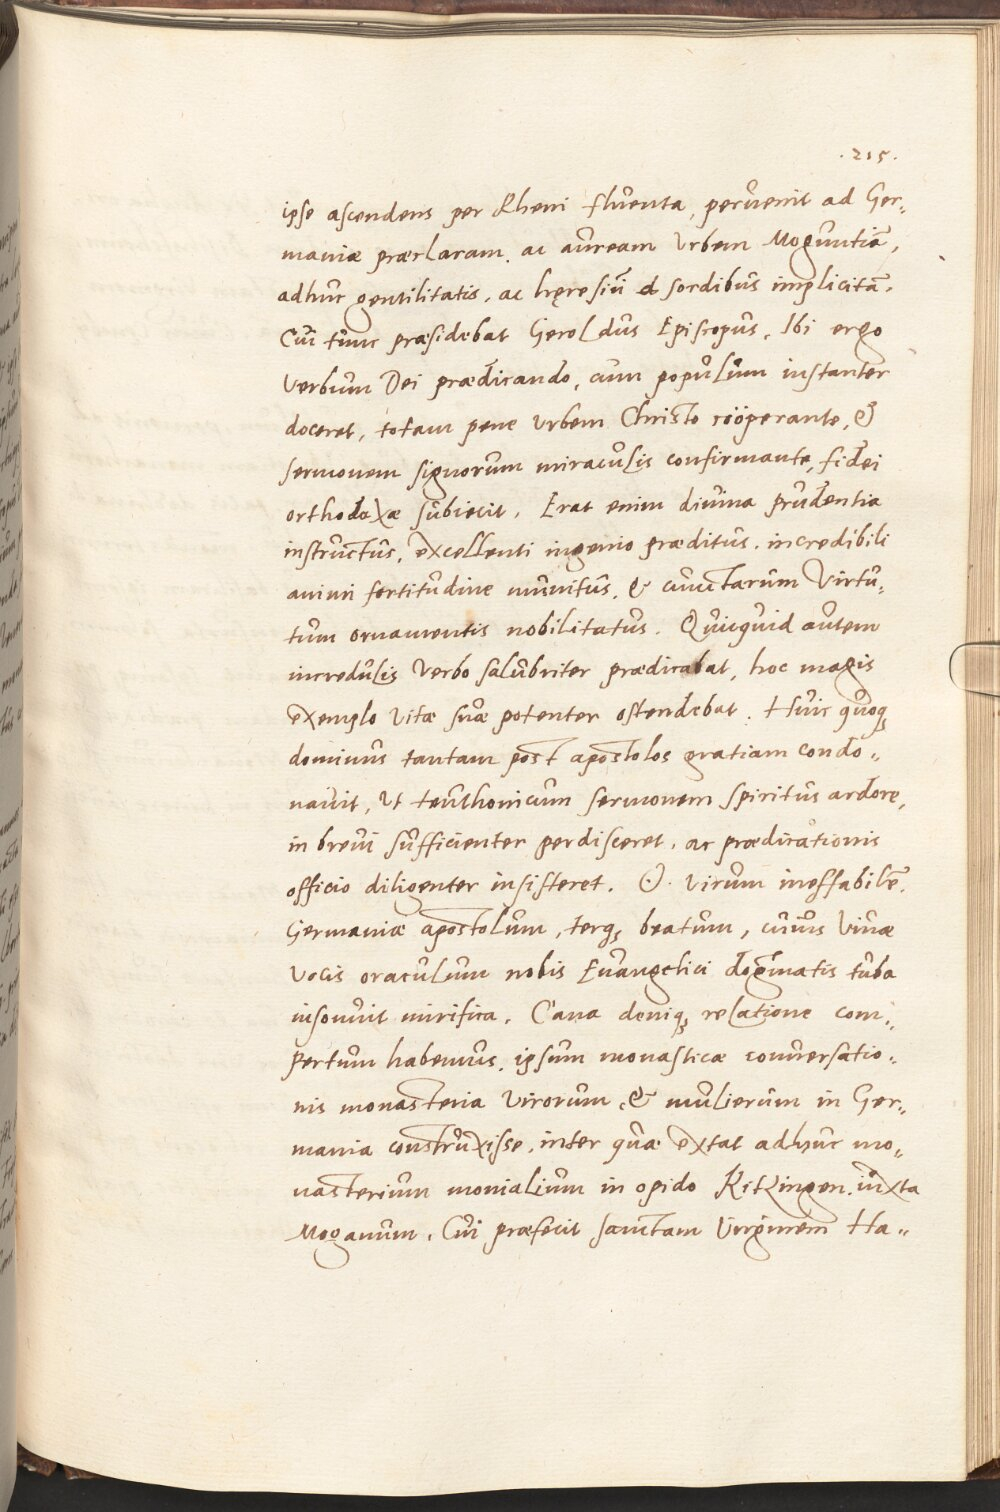 .215.
ipse ascendens per Rheni fluenta, pervenit ad Ger„
maniæ præclaram, ac auream Urbem Moguntiã,
adhuc gentilitatis, ac hęresiũ & sordibus implicitã.
Cui tunc præsidebat Geroldus Episcopus. Ibi ergo
Verbum Dei prædicando, cum populum instanter
doceret, totam pene urbem Christo coöperante, &
sermonem signorum miraculis confirmante, fidei
orthodoxæ subiecit. Erat enim divina prudentia
instructus, excellenti ingenio præditus, incredibili
animi fortitudine munitus, & cunctarum Virtu„
tum ornamentis nobilitatus. Quicquid autem
incredulis Verbo salubriter prædicabat, hoc magis
exemplo Vitæ suæ potenter ostendebat. Huic quoq,
dominus tantam post apostolos gratiam condo„
navit, Ut teuthonicum sermonem spiritus ardore,
in brevi sufficienter perdisceret, ac prædicationis
officio diligenter insisteret. O. Virum ineffabilẽ.
Germaniæ apostolum, terq, beatum, cuius Vivæ
Vocis oraculum nobis Evangelici dogmatis tuba
insonuit mirifica. Cana deniq, relatione com„
pertum habemus, ipsum monasticæ conversatio„
nis monasteria Virorum, & mulierum in Ger„
mania construxisse, inter quæ extat adhuc mo„
nasterium monialium in opido Kitzingen. iuxta
Moganum. Cui præfecit sanctam Virginem Ha„